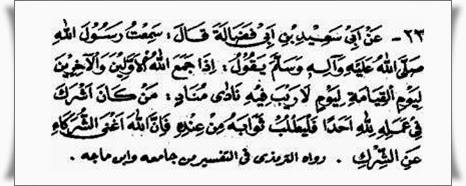 ٢٣- عَنْ أَبِي سَعِيْدِ بْنِ أَبِي فَضَالَةَ قَالَ: سَمِعْتُ رَسُوْلَ اللهِ
صَلَّى اللهُ عَلَيْهِ وَآلِهِ وَسَلَّمَ يَقُوْلُ: إِذَا جَمَعَ اللهُ الْأَوَّلِيْنَ وَالْآخِرِيْنَ
لِيَوْمِ الْقِيَامَةِ لِيَوْمٍ لَا رَيْبَ فِيْهِ نَادَى مُنَادٍ: مَنْ كَانَ أَشْرَكَ
فِيْ عَمَلِهِ لِلّٰهِ أَحَدًا فَلْيَطْلُبْ ثَوَابَهُ مِنْ عِنْدِهِ فَإِنَّ اللهَ أَغْنَى الشُّرَكَاءِ
عَنِ الشِّرْكِ . رواه الترمذى فى التفسير من جامعه وابن ماجه .